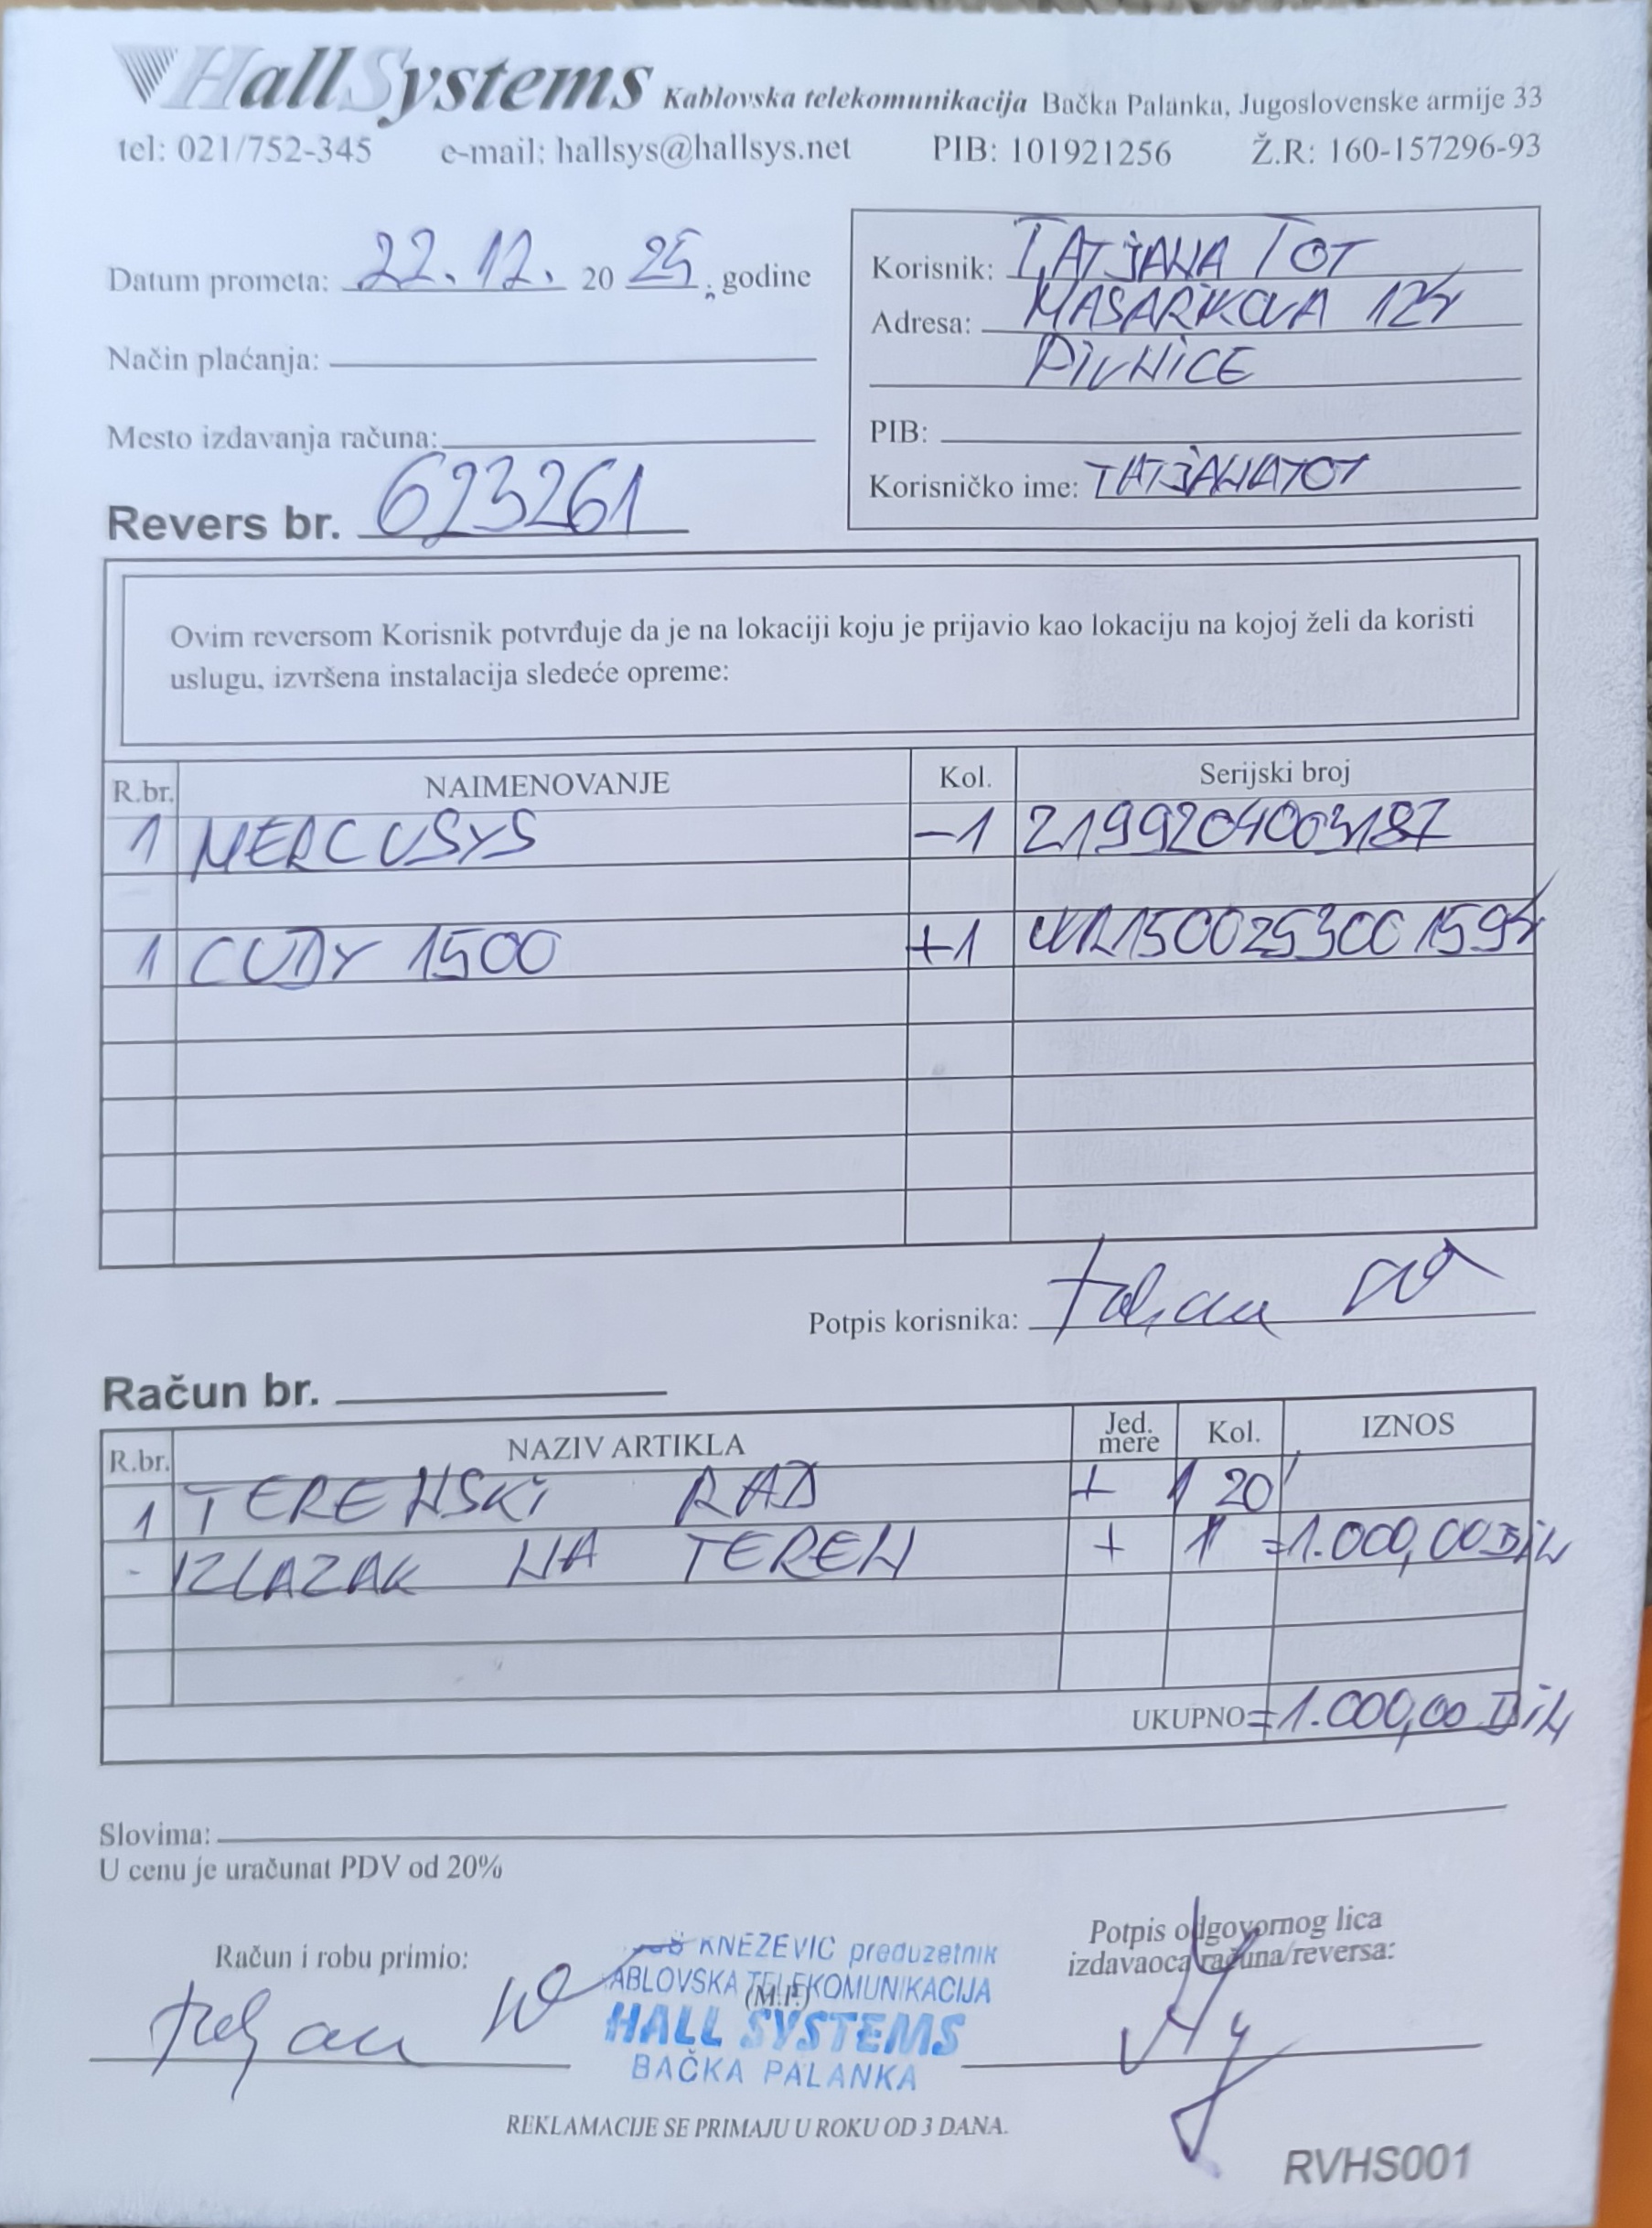 HallSystems Kablovska telekomunikacija Bačka Palanka, Jugoslovenske armije 33
tel: 021/752-345 e-mail: hallsys@hallsys.net PIB: 101921256 Ž.R: 160-157296-93
Datum prometa: 22.12. 20 25. godine
Način plaćanja:
Mesto izdavanja računa:
Revers br. 623261
Korisnik: TATJANA TOT
Adresa: MASARIKOVA 124
PIVNICE
PIB:
Korisničko ime: TATJANATOT
Ovim reversom Korisnik potvrđuje da je na lokaciji koju je prijavio kao lokaciju na kojoj želi da koristi
uslugu, izvršena instalacija sledeće opreme:
R.br. NAIMENOVANJE Kol. Serijski broj
1 MERCUSYS -1 2199204003187
1 CUDY 1500 +1 WR1500253001594
Potpis korisnika:
Račun br.
R.br. NAZIV ARTIKLA Jed. mere Kol. IZNOS
1 TERENSKI RAD + 1 20'
- IZLAZAK NA TEREN + 1 =1.000,00 DIN
UKUPNO =1.000,00 DIN
Slovima:
U cenu je uračunat PDV od 20%
Račun i robu primio:
KNEZEVIC preduzetnik
ABLOVSKA TELEKOMUNIKACIJA
(M.P.)
HALL SYSTEMS
BAČKA PALANKA
Potpis odgovornog lica
izdavaoca računa/reversa:
REKLAMACIJE SE PRIMAJU U ROKU OD 3 DANA.
RVHS001